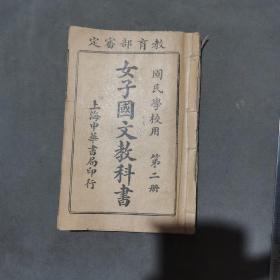 教育部審定
國民學校用
第二册
女子國文教科書
上海中華書局印行